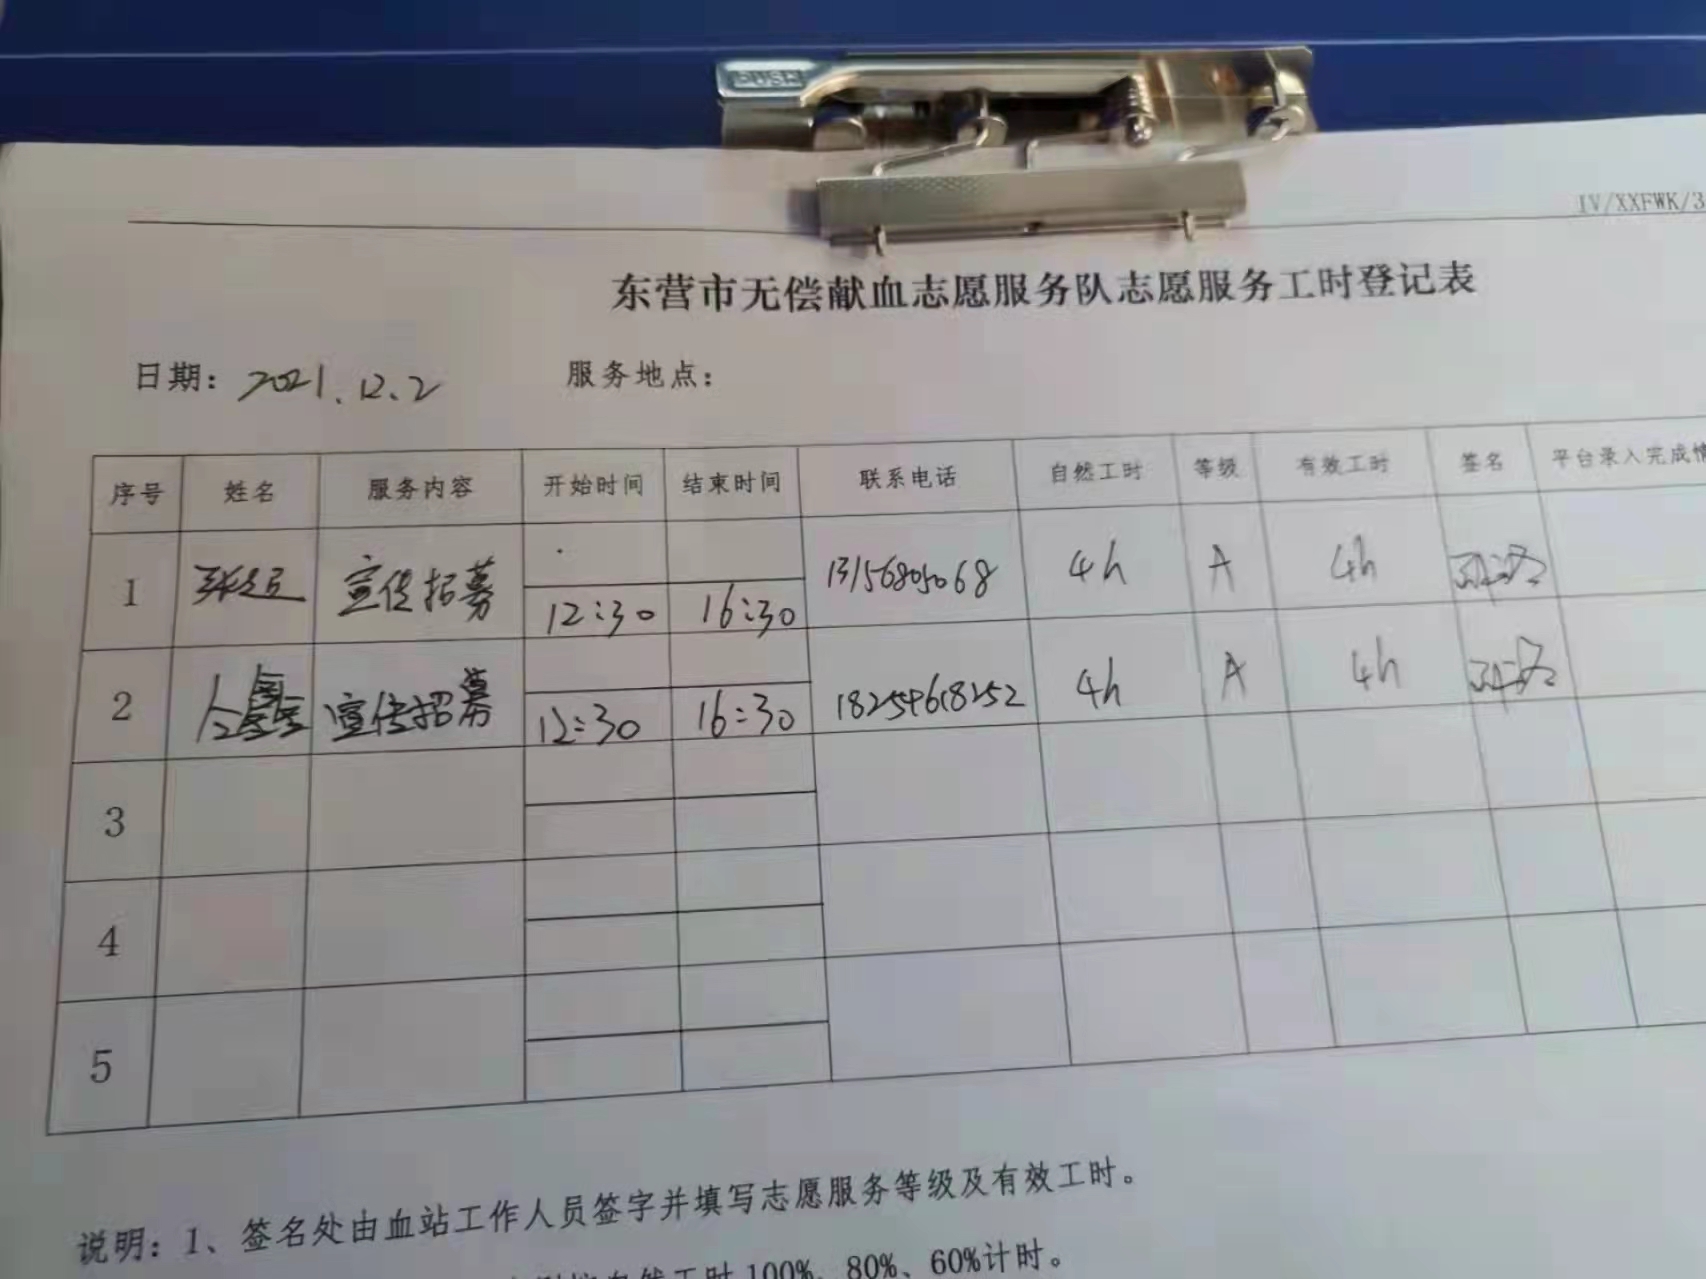 PUSH
IV/XXFWK/3
东营市无偿献血志愿服务队志愿服务工时登记表
日期：2021.12.2 服务地点：
序号 姓名 服务内容 开始时间 结束时间 联系电话 自然工时 等级 有效工时 签名 平台录入完成情
1 宣传招募 12:30 16:30 13156805068 4h A 4h
2 宣传招募 12:30 16:30 18254618252 4h A 4h
3
4
5
说明：1、签名处由血站工作人员签字并填写志愿服务等级及有效工时。
自然工时100%、80%、60%计时。